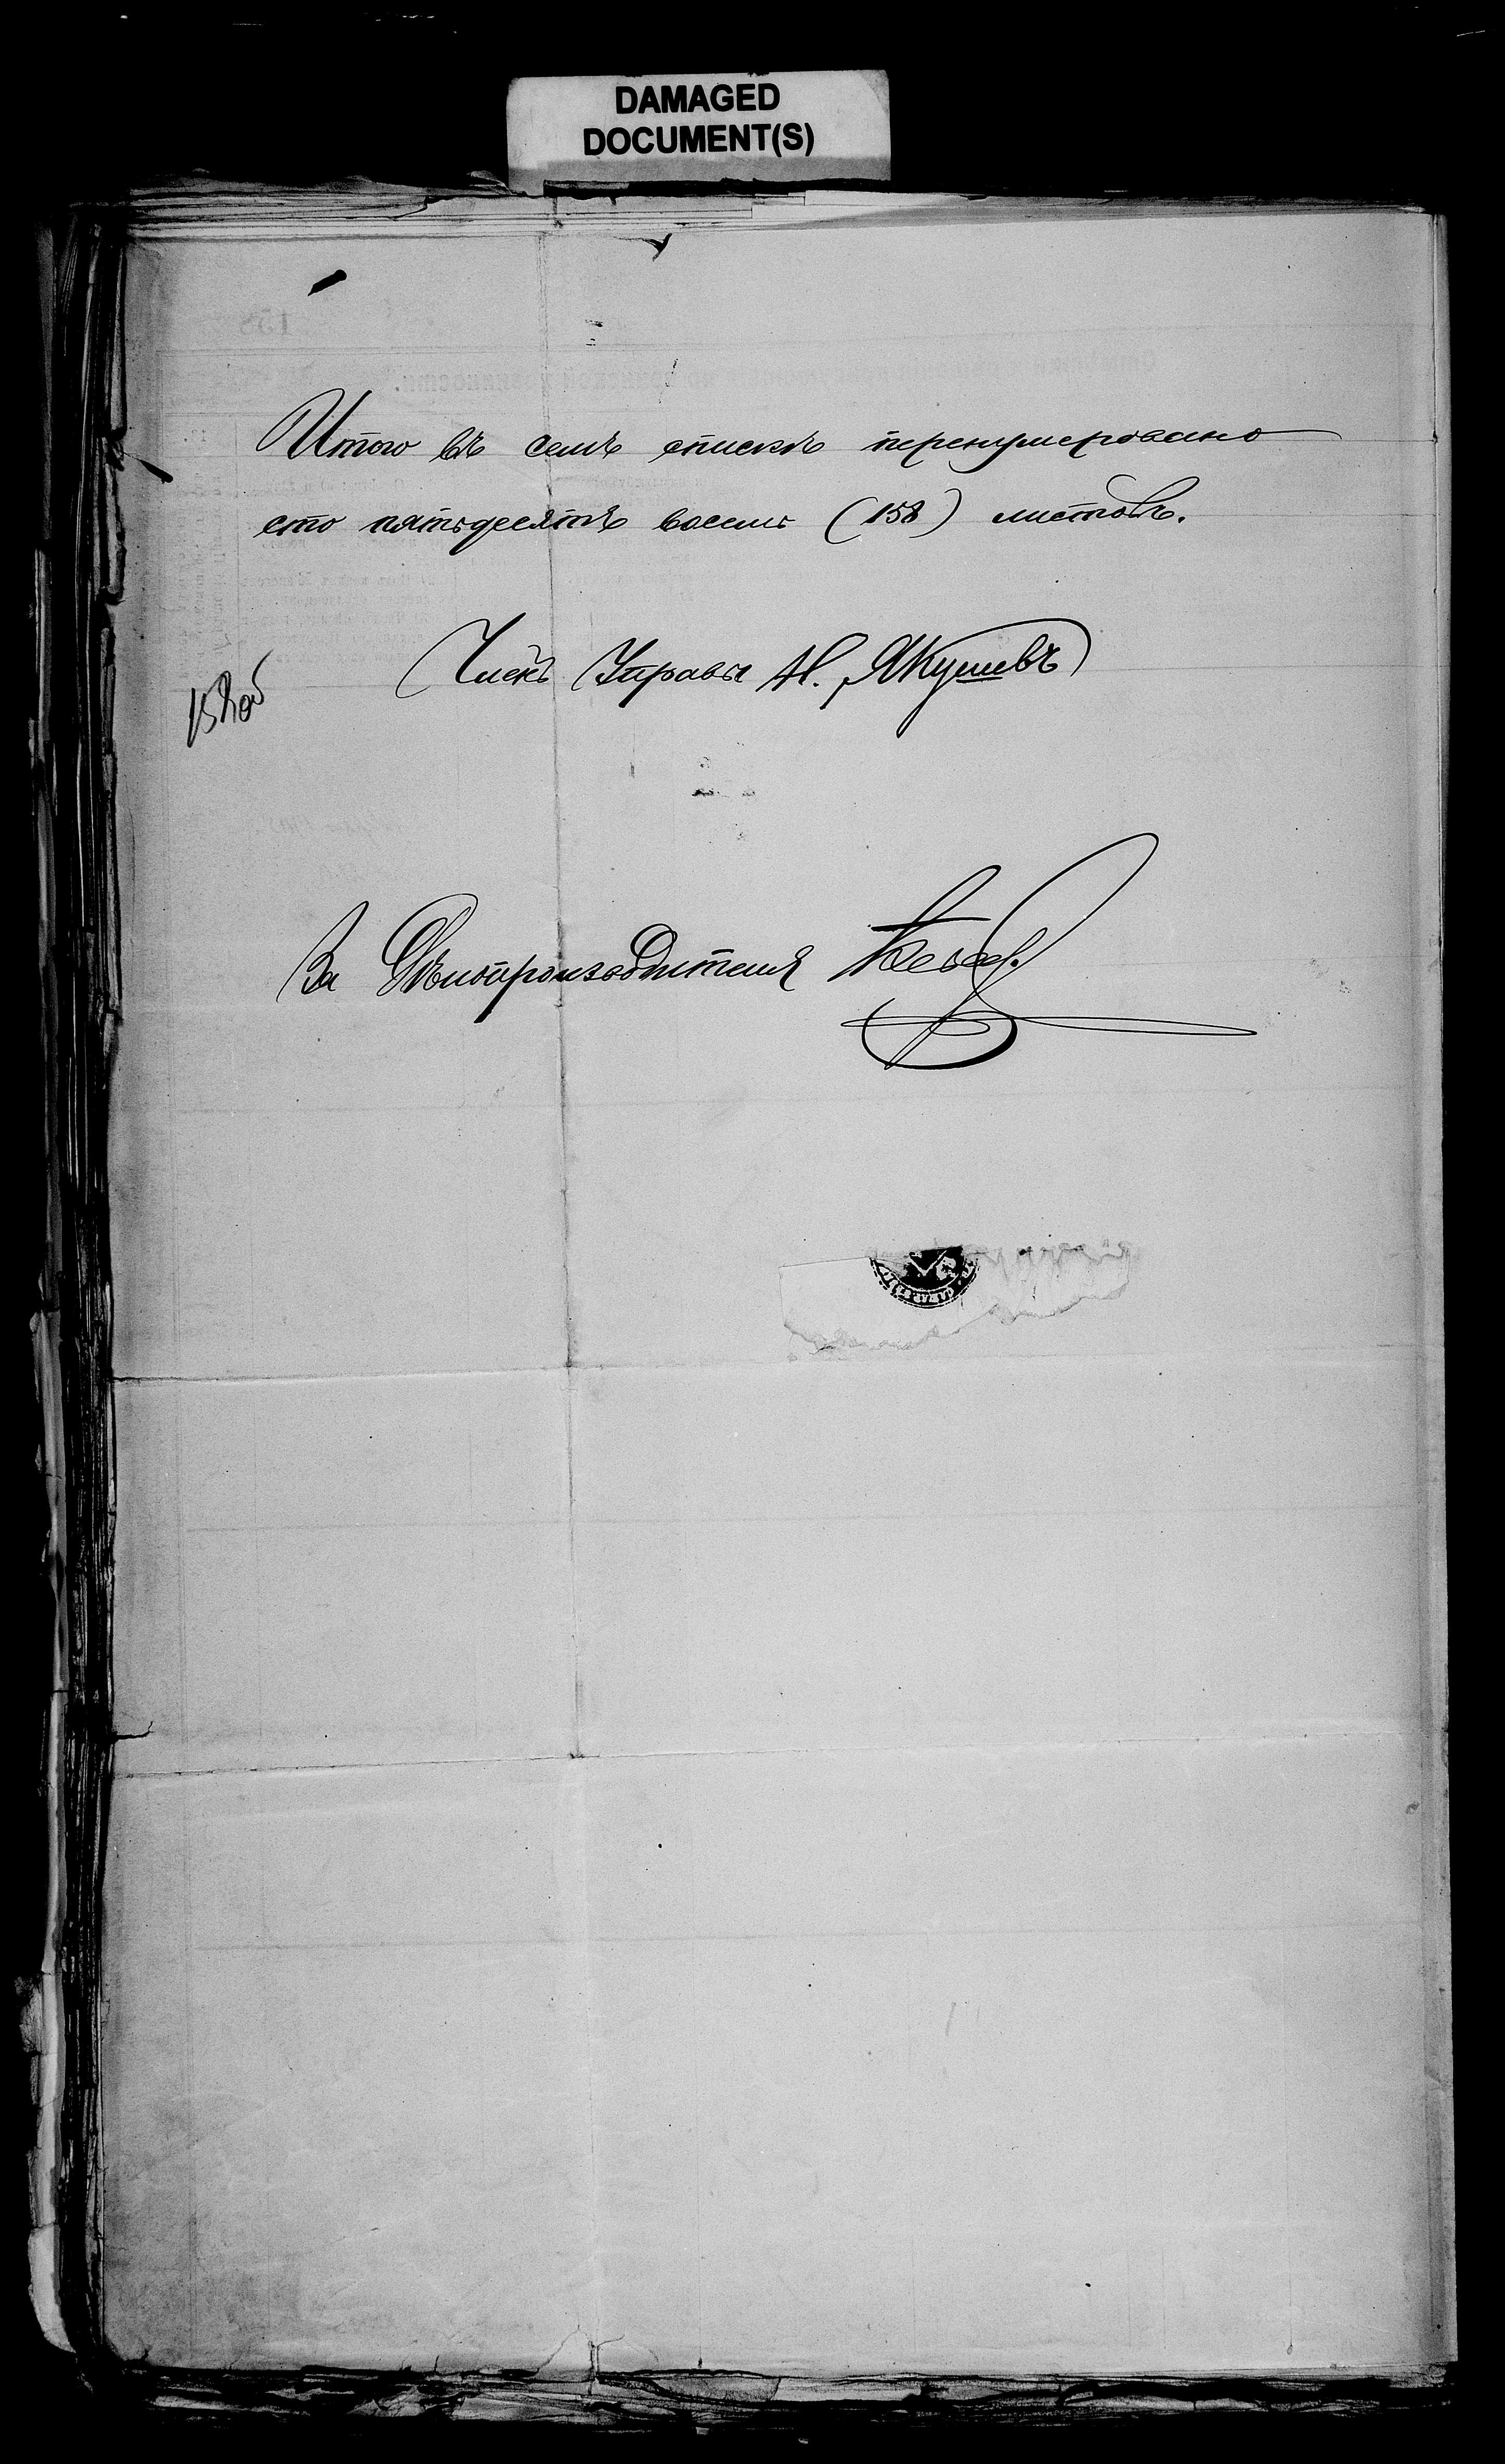 DAMAGED
DOCUMENT(S)
Итого въ семъ спискѣ перенумеровано
сто пятьдесятъ восемь (158) листовъ.
Членъ Управы Н. Якушевъ
158об
За Дѣлопроизводителя